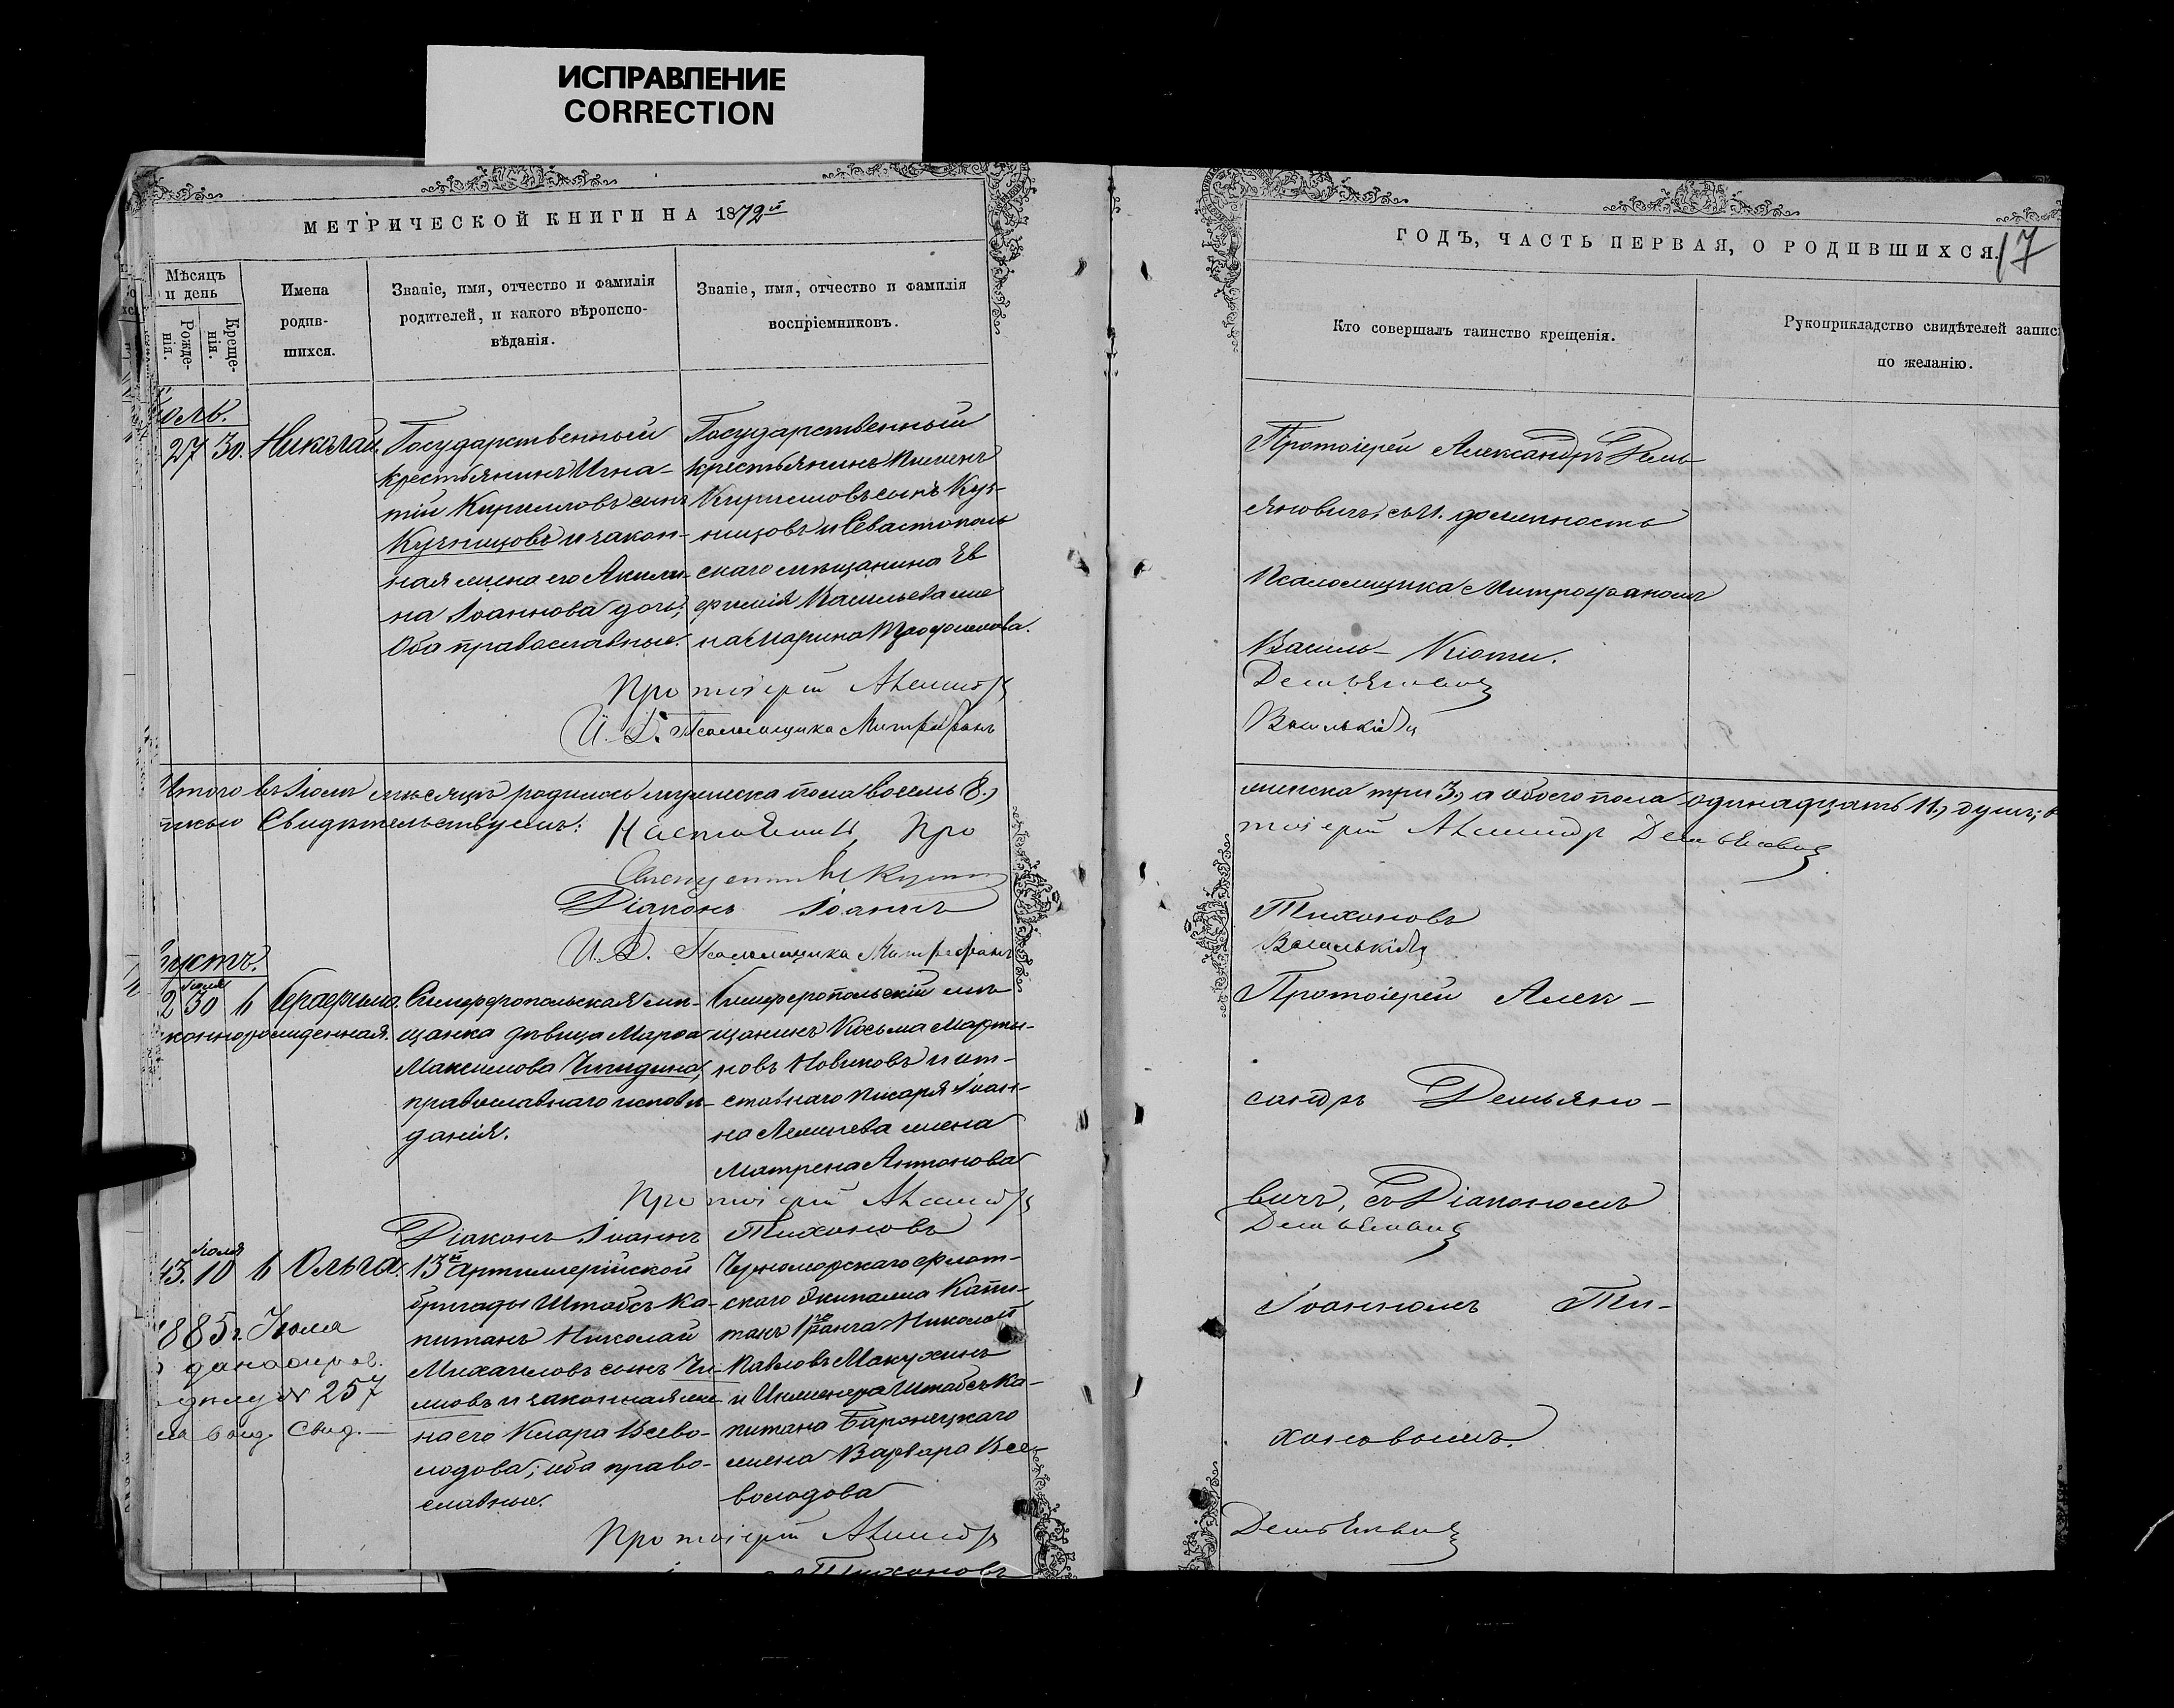 ИСПРАВЛЕНИЕ
CORRECTION
МЕТРИЧЕСКОЙ КНИГИ НА 1872й
Мѣсяцъ и день
Рожде-нія.
Креще-нія.
Имена
родив-
шихся.
Званіе, имя, отчество и фамилія
родителей, и какого вѣроиспо-
вѣданія.
Званіе, имя, отчество и фамилія
воспріемниковъ.
27 30. Николай.
Государственный
крестьянинъ Игна-
тій Кирилловъ сынъ
Кузнецовъ и закон-
ная жена его Акили-
на Іоаннова дочь;
Оба православные.
Государственный
крестьянинъ Пименъ
Кирилловъ сынъ Куз-
нецовъ и Севастополь
скаго мѣщанина Ев
фимія Васильева же
на Марина
Протоіерей Александръ
И. Д. Псаломщика Митрофанъ
Итого въ Іюлѣ мѣсяцѣ родилось мужеска пола восемь 8.,
Свидѣтельствуемъ: Настоятель Про
Діаконъ Іоаннъ
И. Д. Псаломщика Митрофанъ
густъ.
Іюля
30 6 Серафима
коннорожденная.
Симферопольская мѣ-
щанка дѣвица Марѳа
Максимова
православнаго исповѣ-
данія.
Симферопольскій мѣ
щанинъ Косьма Марти-
новъ Новиковъ и от-
ставнаго писаря Іоан-
на жена
Матрена Антонова
Протоіерей Александръ
Діаконъ Іоаннъ Тихоновъ
Іюля
43. 10 6 Ольга.
885 г. Іюля
№ 257
свид.
13й Артиллерійской
бригады Штабсъ Ка-
питанъ Николай
Михаиловъ сынъ
и законная же
на его Клара Всево-
лодова; оба право-
славные.
Черноморскаго Флот-
скаго Экипажа Капи-
танъ 1го ранга Николай
Павловъ Макухинъ
и Инженера Штабсъ Ка-
питана Баронецкаго
жена Варвара Все-
володова
Протоіерей Александръ
Тихоновъ
ГОДЪ, ЧАСТЬ ПЕРВАЯ, О РОДИВШИХСЯ.
17
Кто совершалъ таинство крещенія.
Рукоприкладство свидѣтелей запис
по желанію.
Протоіерей Александръ Демь-
яновичъ, съ И. должность
Псаломщика Митрофаномъ
Василь- Кіоти.
Демьяновичъ
Василькіоти
женска три 3., а обоего пола одинадцать 11., душъ;
тоіерей Александръ Демьяновичъ
Тихоновъ
Василькіоти
Протоіерей Алек-
сандръ Демьяно-
вичъ, съ Діакономъ
Демьяновичъ
Іоанномъ Ти-
хоновымъ.
Демьяновичъ